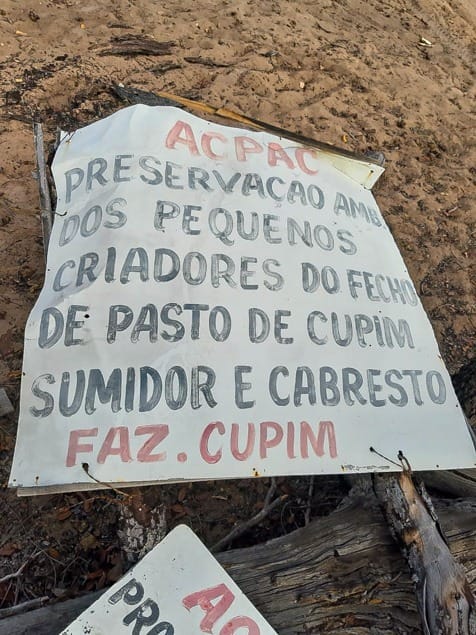 ACPAC
PRESERVAÇAO AMB.
DOS PEQUENOS
CRIADORES DO FECHO
DE PASTO DE CUPIM
SUMIDOR E CABRESTO
FAZ. CUPIM